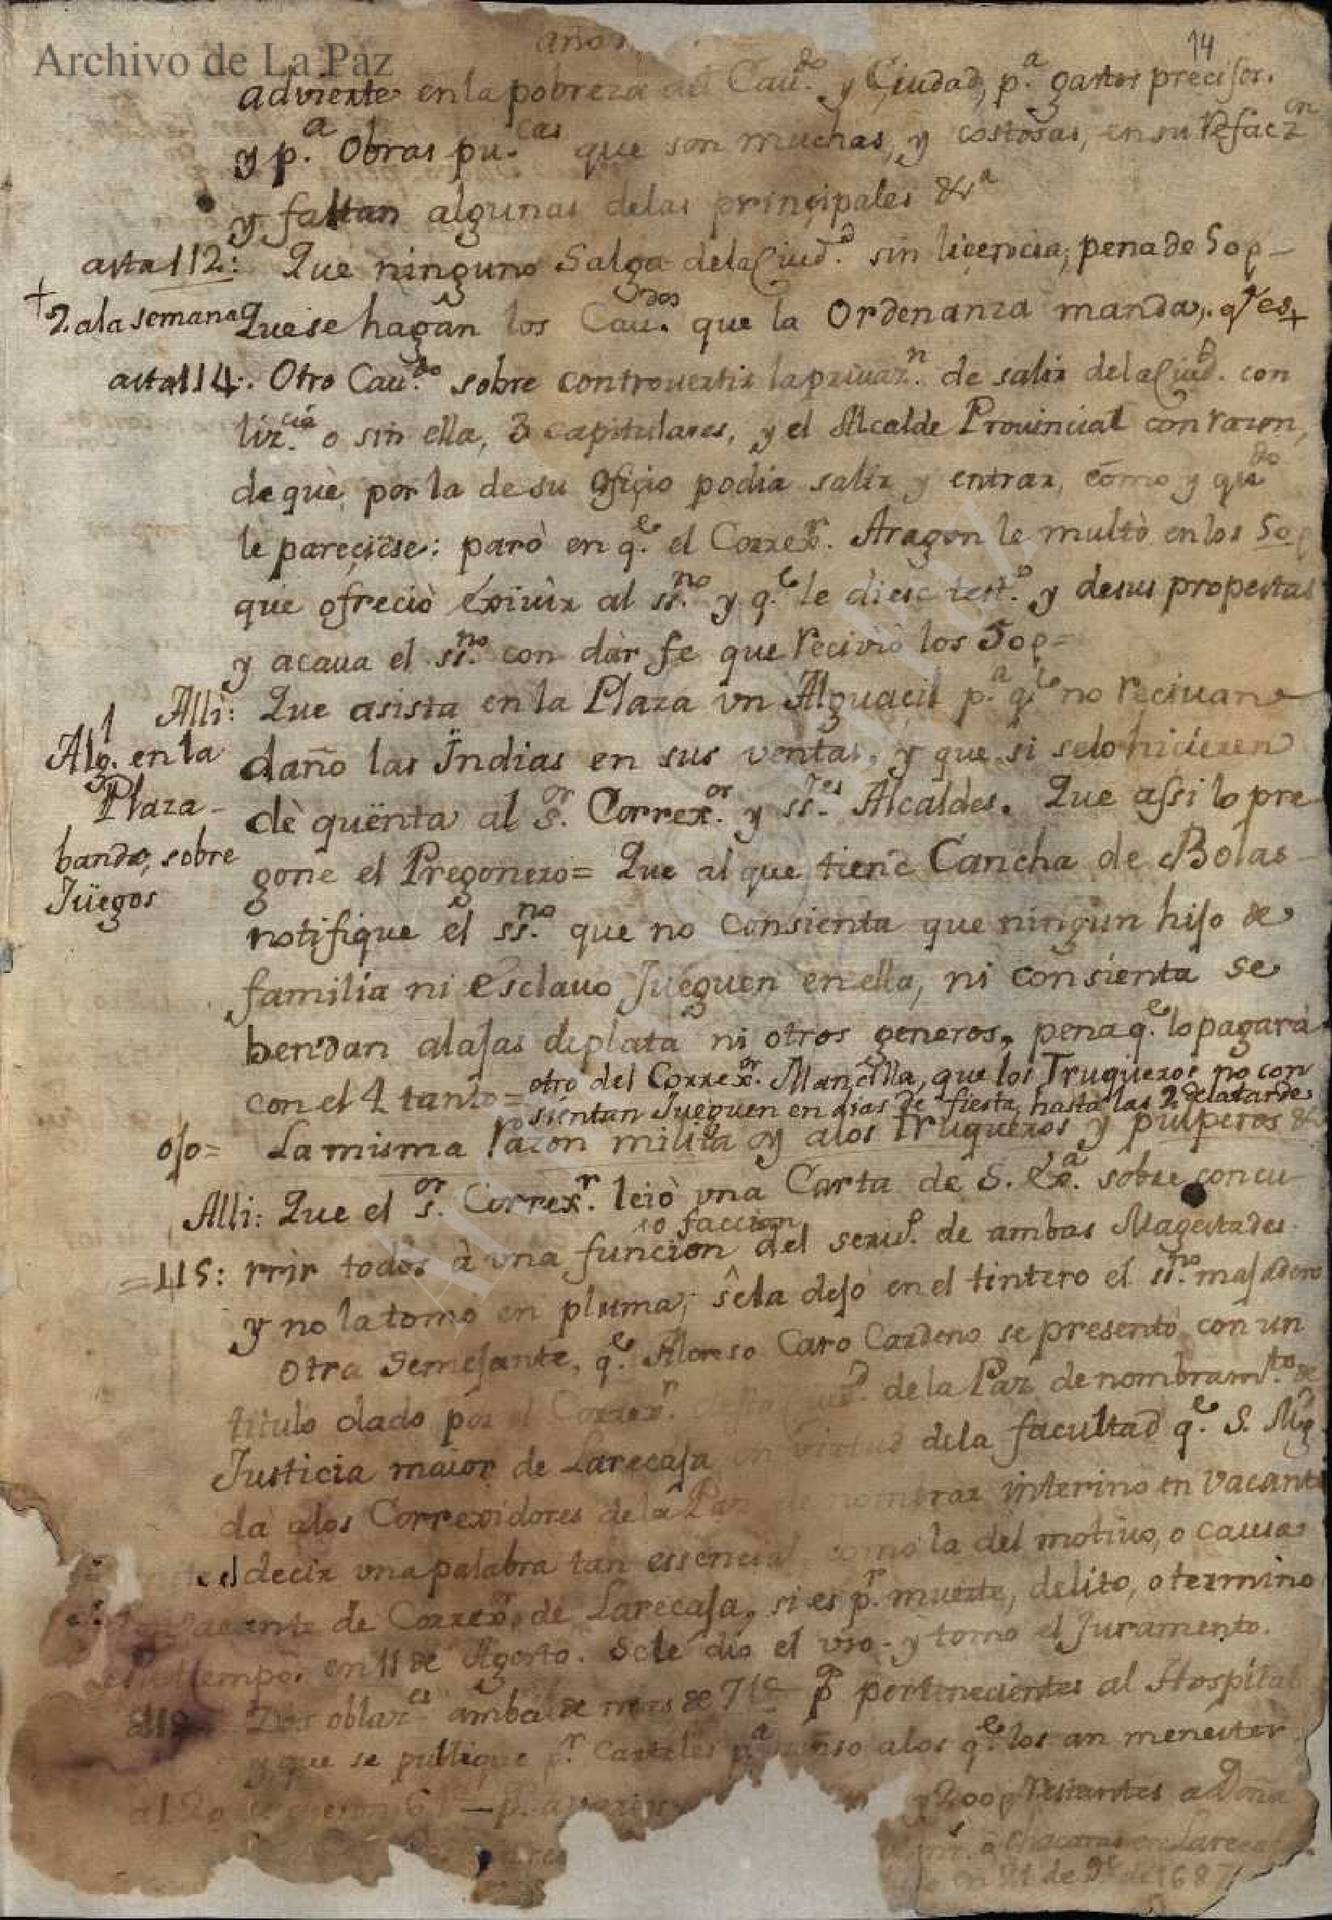 Archivo de La Paz
años
14
advierte en la pobreza del Cau.do y Ciudad, p.a gastos precisos.
y p.a Obras pu.cas que son muchas, y costosas, en su refacz.on
y faltan algunas de las principales &.a
asta 112: Que ninguno Salga de la Ciud.d sin licencia, pena de 50 p
+ 2. a la semana Que se hagan los Cau.dos que la Ordenanza manda, q.e es +
asta 114: Otro Cau.do sobre controuertir la priuaz.n de salir de la Ciud.d con
liz.cia o sin ella, 3 capitulares, y el Alcalde Prouincial con razon,
de què, por la de su oficio podia salir y entrar, como y qu.do
le pareciese: parò en q.e el Correx.r Aragon le multò en los 50 p
que ofreciò exiuir al ss.no y q.e le diese test.o y de sus propestas
y acaua el ss.no con dar fe que reciviò los 50 p =
Alli: Que asista en la Plaza vn Alguacil p.a q.e no reciuan
Alg.l en la
daño las Indias en sus ventas, y que si se lo hicieren
Plaza
dè quënta al s.or Correx.or y ss.res Alcaldes. Que assi lo pre
bando, sobre
gone el Pregonero = Que al que tiene Cancha de Bolas
Jüegos
notifique el ss.no que no consienta que ningun hijo de
familia ni esclauo Jueguen en ella, ni consienta se
bendan alajas de plata ni otros generos, pena q.e lo pagarà
con el 4 tanto = otro del Correx.or Mancilla, que los Truqueros no con
sientan Jueguen en dias de fiesta, hasta las 2 de la tarde
ojo = La misma razon milita oy a los Truqueros y pulperos &
Alli: Que el s.or Correx.r leiò vna Carta de S. Ex.a sobre concu
o faccion
=115: rrir todos à vna funcion del seru.o de ambas Magestades
y no la tomò en pluma; se la dejò en el tintero el ss.no majadero
Otra Semejante, q.e Alonso Caro Cardeno se presentò con un
titulo dado por el Correx.r Ciud.d de la Paz de nombram.to de
Justicia maior de Larecaja en virtud de la facultad q.e S. Mg.
dà a los Correxidores de la Paz de nombrar interino en Vacante
el decir vna palabra tan essencial como la del motiuo, o causa
vacante de Correx.or de Larecaja, si es p.r muerte, delito, o termino
tiempo. en 11 de Agosto. Se le diò el vso. y tomò el Juramento.
Dos oblaz.es ambas de mas de p pertenecientes al Hospital
y que se publique p.r Carteles p.a auiso a los q.e los an menester
y 200 p restantes a Doña
chacaras en Larecaja
en 21 de de 1687